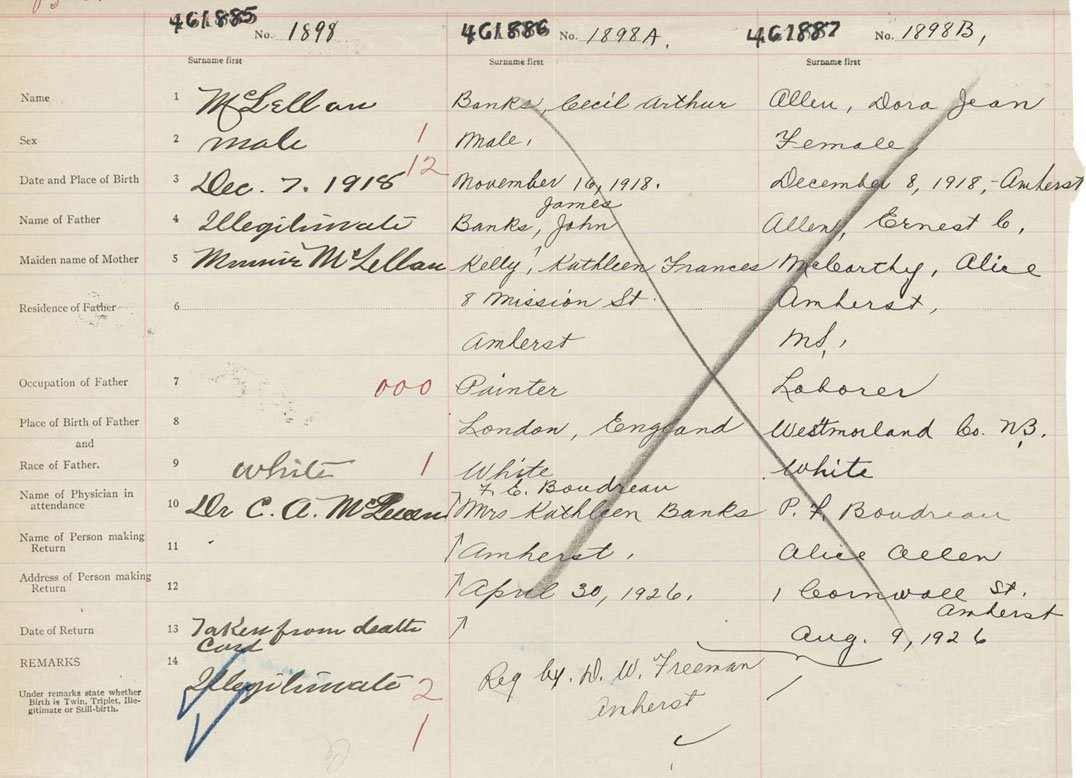 461885 No. 1898 461886 No. 1898A. 461887 No. 1898B,
Surname first Surname first Surname first
Name 1 McLellan Banks, Cecil Arthur Allen, Dora Jean
Sex 2 male 1 Male, Female,
12
Date and Place of Birth 3 Dec. 7. 1918 November 16, 1918. December 8, 1918,-Amherst
James
Name of Father 4 Illegitimate Banks, John Allen, Ernest C,
Maiden name of Mother 5 Minnie McLellan Kelly, Kathleen Frances McCarthy, Alice
Residence of Father 6 8 Mission St. Amherst,
Amherst NS,
Occupation of Father 7 000 Painter Laborer
Place of Birth of Father 8 London, England Westmorland Co. NB.
and
Race of Father. 9 White 1 White White
F. E. Boudreau
Name of Physician in
attendance 10 Dr C. A. Mrs Kathleen Banks P. F. Boudreau
Name of Person making
Return 11 Amherst, Alice Allen
Address of Person making
Return 12 April 30, 1926. 1 Cornwall St.
Amherst
Date of Return 13 Taken from death
Card Aug. 9, 1926
REMARKS 14 Illegitimate 2 Reg by. D. W. Freeman
Amherst
Under remarks state whether
Birth is Twin, Triplet, Ille-
gitimate or Still-birth.
1